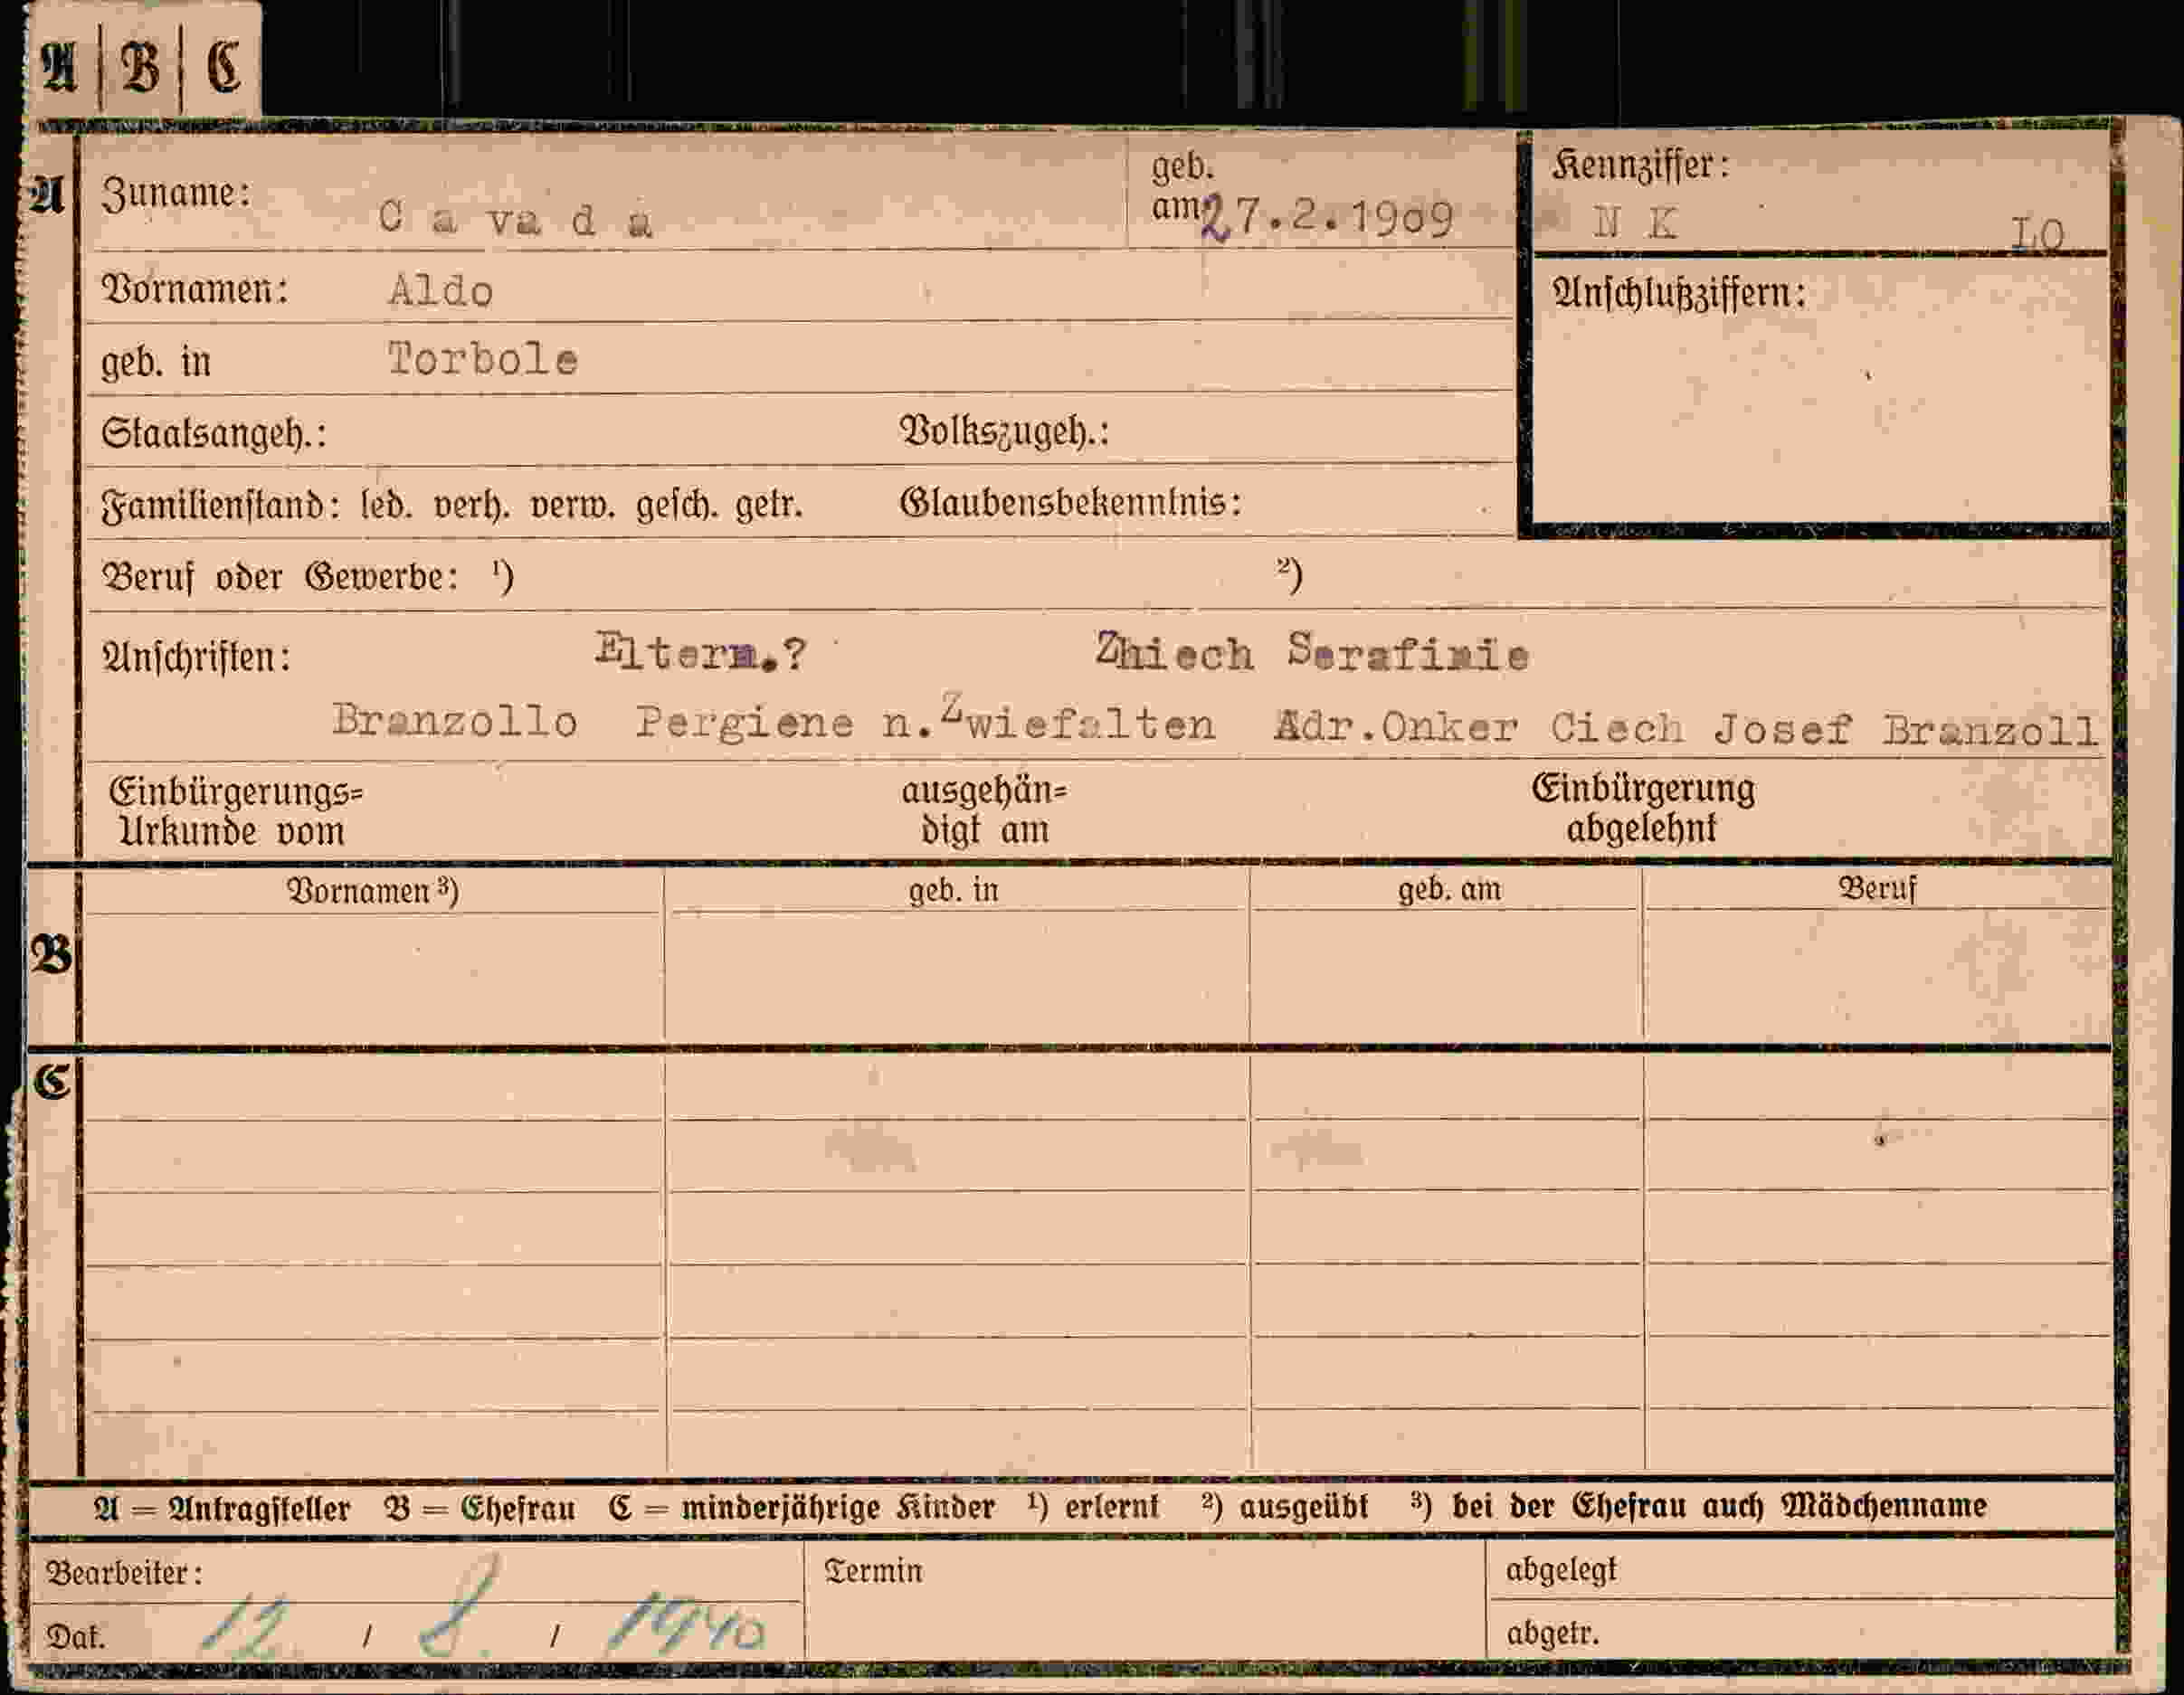 A | B | C
A
Zuname: C a va d a geb. am 27.2.1909
Kennziffer: N K LO
Vornamen: Aldo
Anschlußziffern:
geb. in Torbole
Staatsangeh.: Volkszugeh.:
Familienstand: led. verh. verw. gesch. getr. Glaubensbekenntnis:
Beruf oder Gewerbe: ¹) ²)
Anschriften: Eltern.? Zhiech Serafinie
Branzollo Pergiene n.Zwiefalten Adr.Onker Ciech Josef Branzoll
Einbürgerungs= ausgehän= Einbürgerung
Urkunde vom digt am abgelehnt
B
Vornamen ³) geb. in geb. am Beruf
C
A = Antragsteller B = Ehefrau C = minderjährige Kinder ¹) erlernt ²) ausgeübt ³) bei der Ehefrau auch Mädchenname
Bearbeiter: Termin abgelegt
Dat. 12 / 8. / 1940 abgetr.